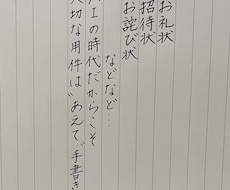 お礼状
招待状
お詫び状
などなど…
AIの時代だからこそ
大切な用件は〝あえて〟手書き